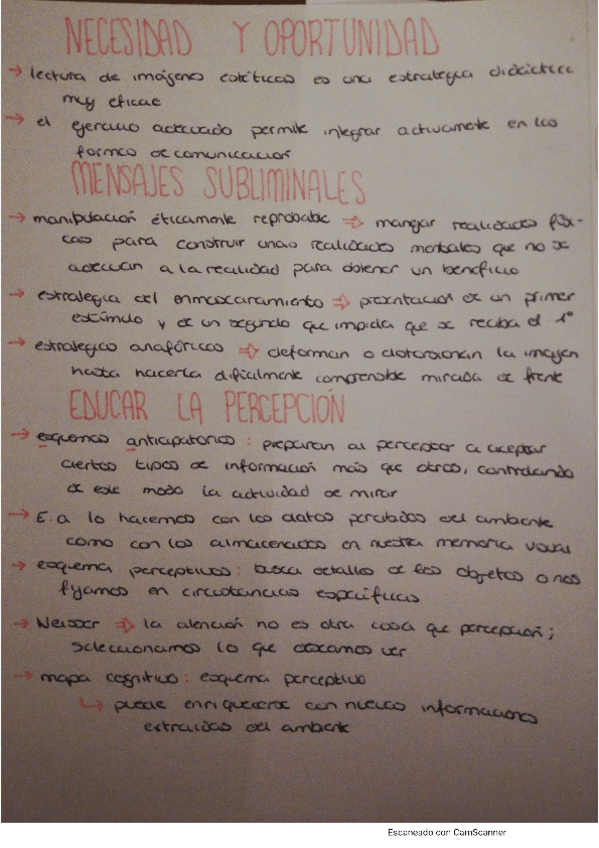 NECESIDAD Y OPORTUNIDAD
→ lectura de imágenes estéticas es una estrategia didáctica
muy eficae
→ el ejercicio adecuado permite integrar activamente en las
formas de comunicación
MENSAJES SUBLIMINALES
→ manipulación éticamente reprobable ⇒ manejar realidades físi-
cas para construir unas realidades mentales que no se
adecuan a la realidad para obtener un beneficio
→ estrategia del enmascaramiento ⇒ presentación de un primer
estímulo y de un segundo que impida que se reciba el 1º
→ estrategias anafóricas ⇒ deforman o distorsionan la imagen
hasta hacerla difícilmente comprensible mirada de frente
EDUCAR LA PERCEPCIÓN
→ esquemas anticipatorios: preparan al perceptor a aceptar
ciertos tipos de información más que otros, controlando
de este modo la actividad de mirar
→ E.a lo hacemos con los datos percibidos del ambiente
como con los almacenados en nuestra memoria visual
→ esquema perceptivos: busca detalles de los objetos o nos
fijamos en circustancias específicas
→ Neisser ⇒ la atención no es otra cosa que percepción;
seleccionamos lo que deseamos ver
→ mapa cognitivo: esquema perceptivo
↳ puede enriquecerse con nuevas informaciones
extraidas del ambiente
Escaneado con CamScanner